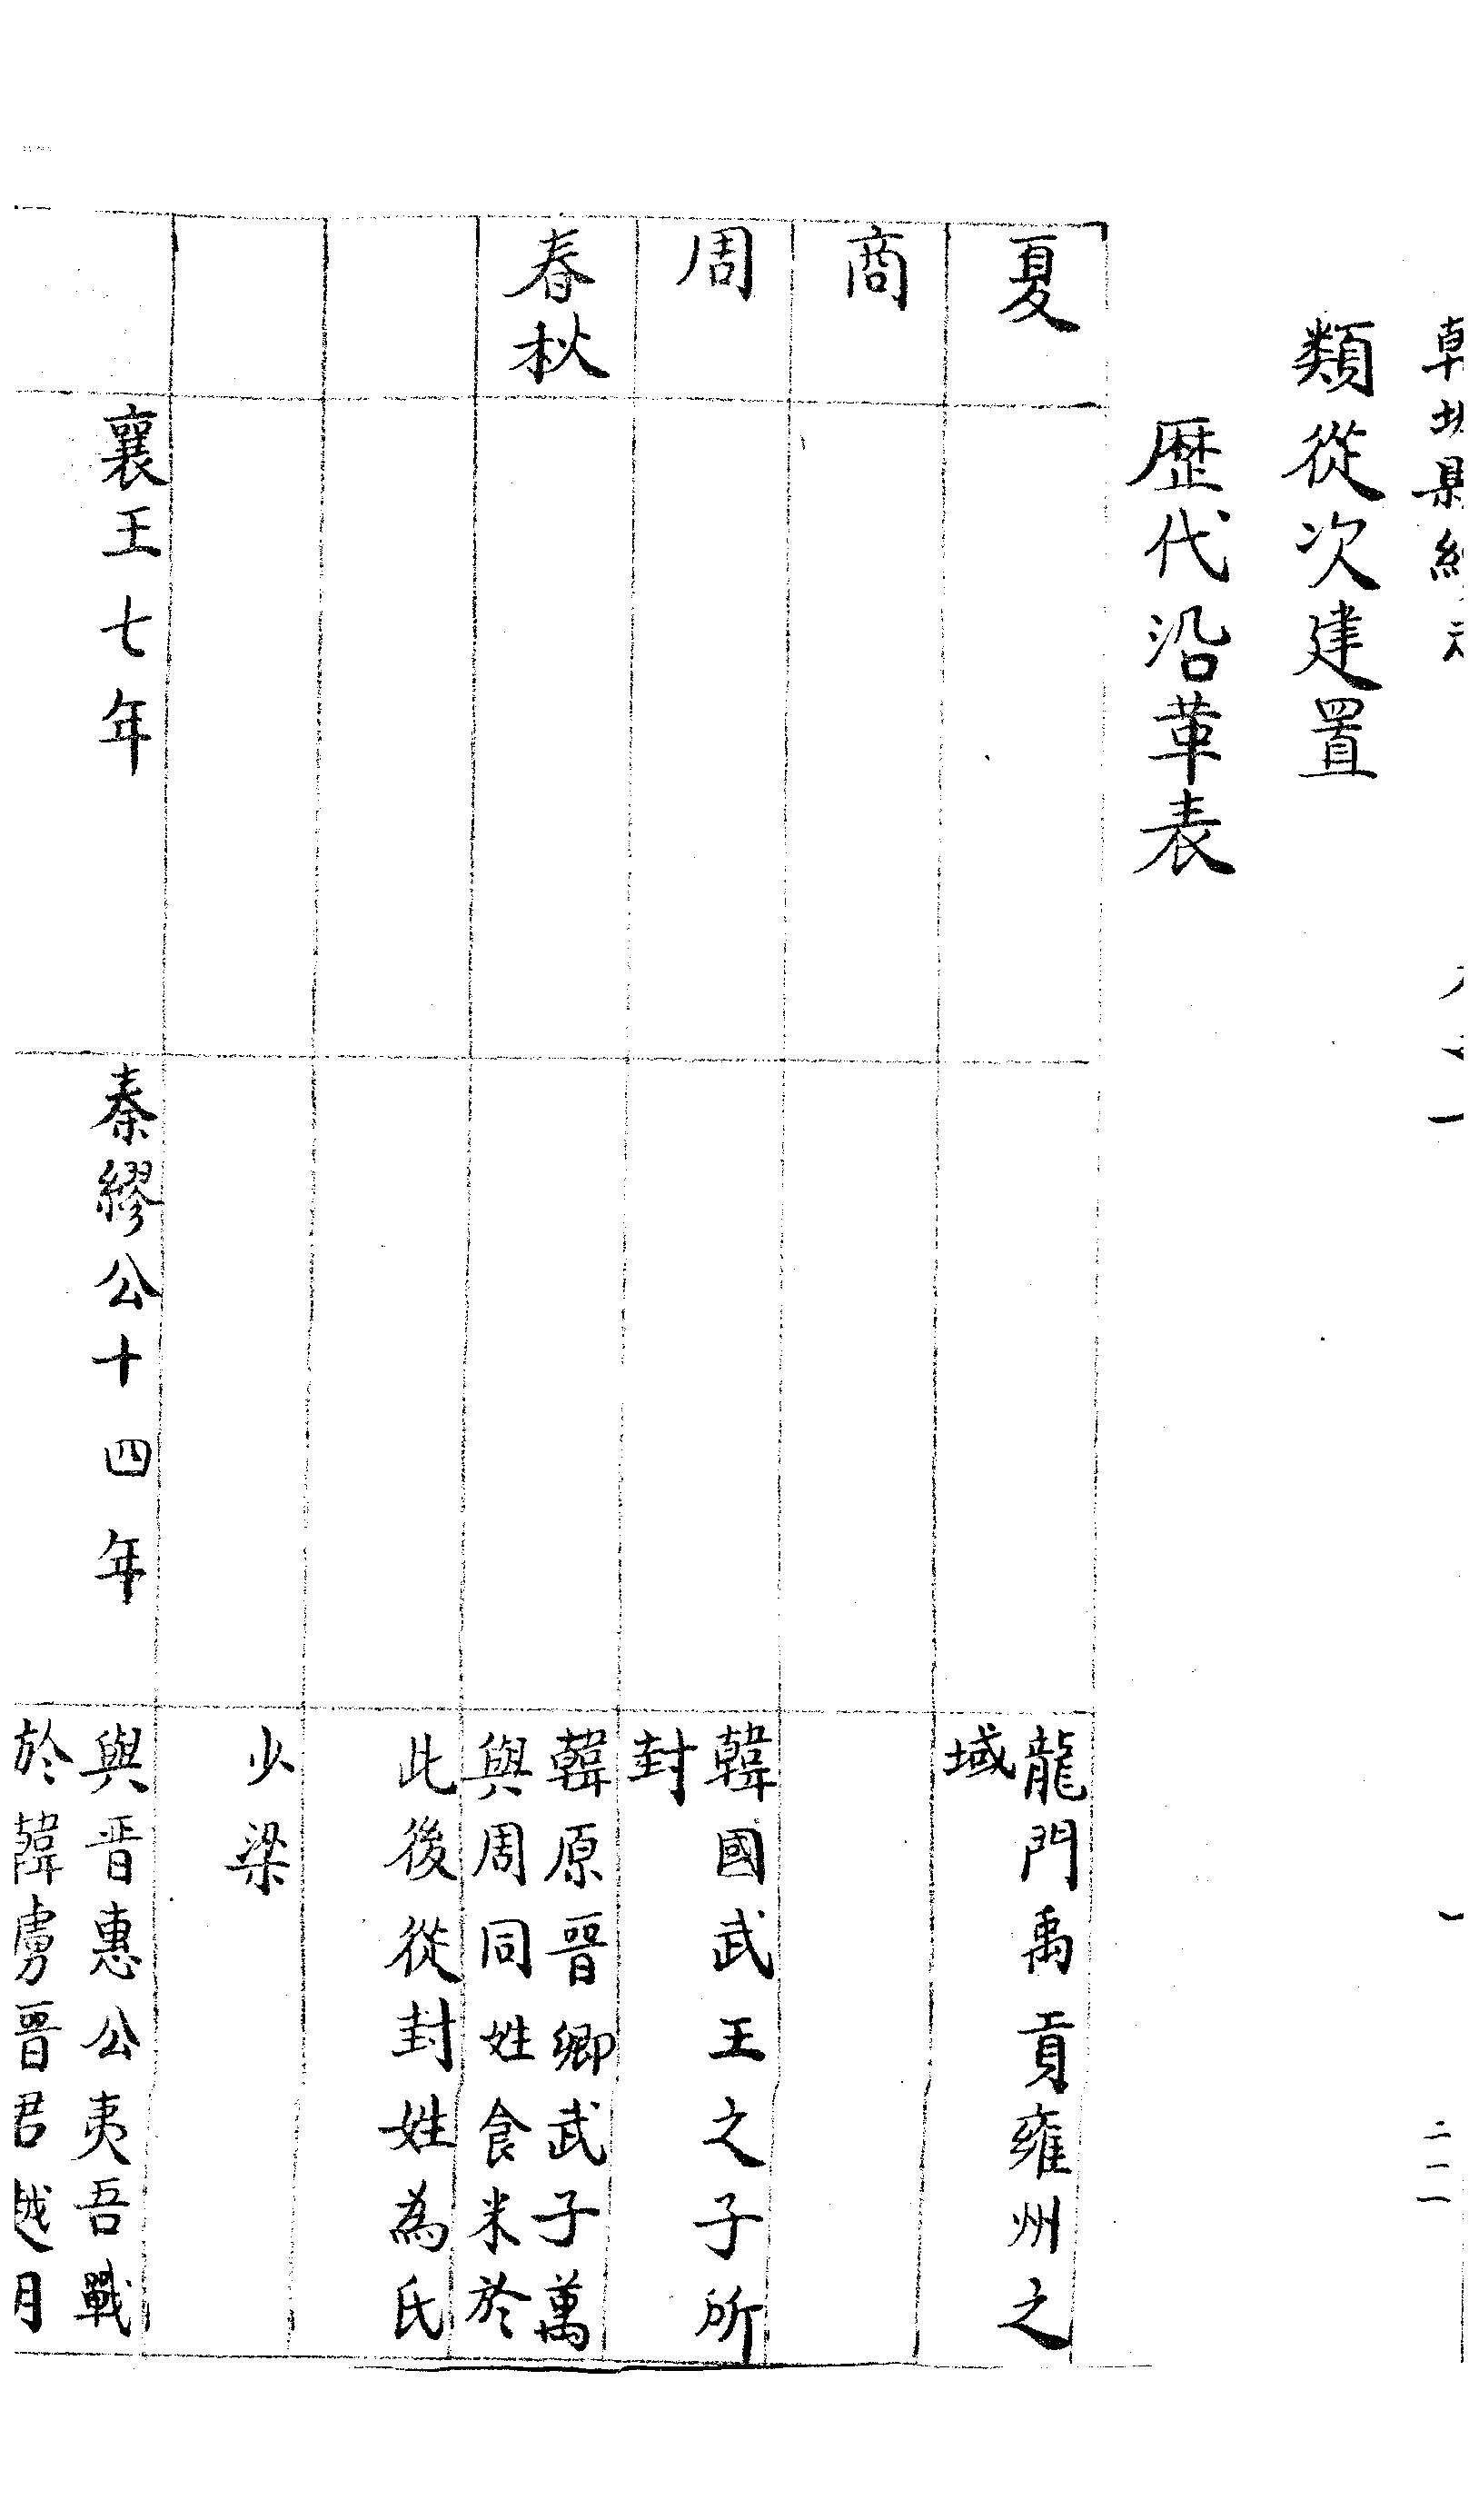 類從次建置
歷代沿革表
夏
龍門禹貢雍州之
域
商
周
韓國武王之子所
封
春秋
韓原晉卿武子萬
與周同姓食米於
此後從封姓為氏
少梁
襄王七年
秦繆公十四年
與晋惠公夷吾戰
於韓虜晉君越月
二一一